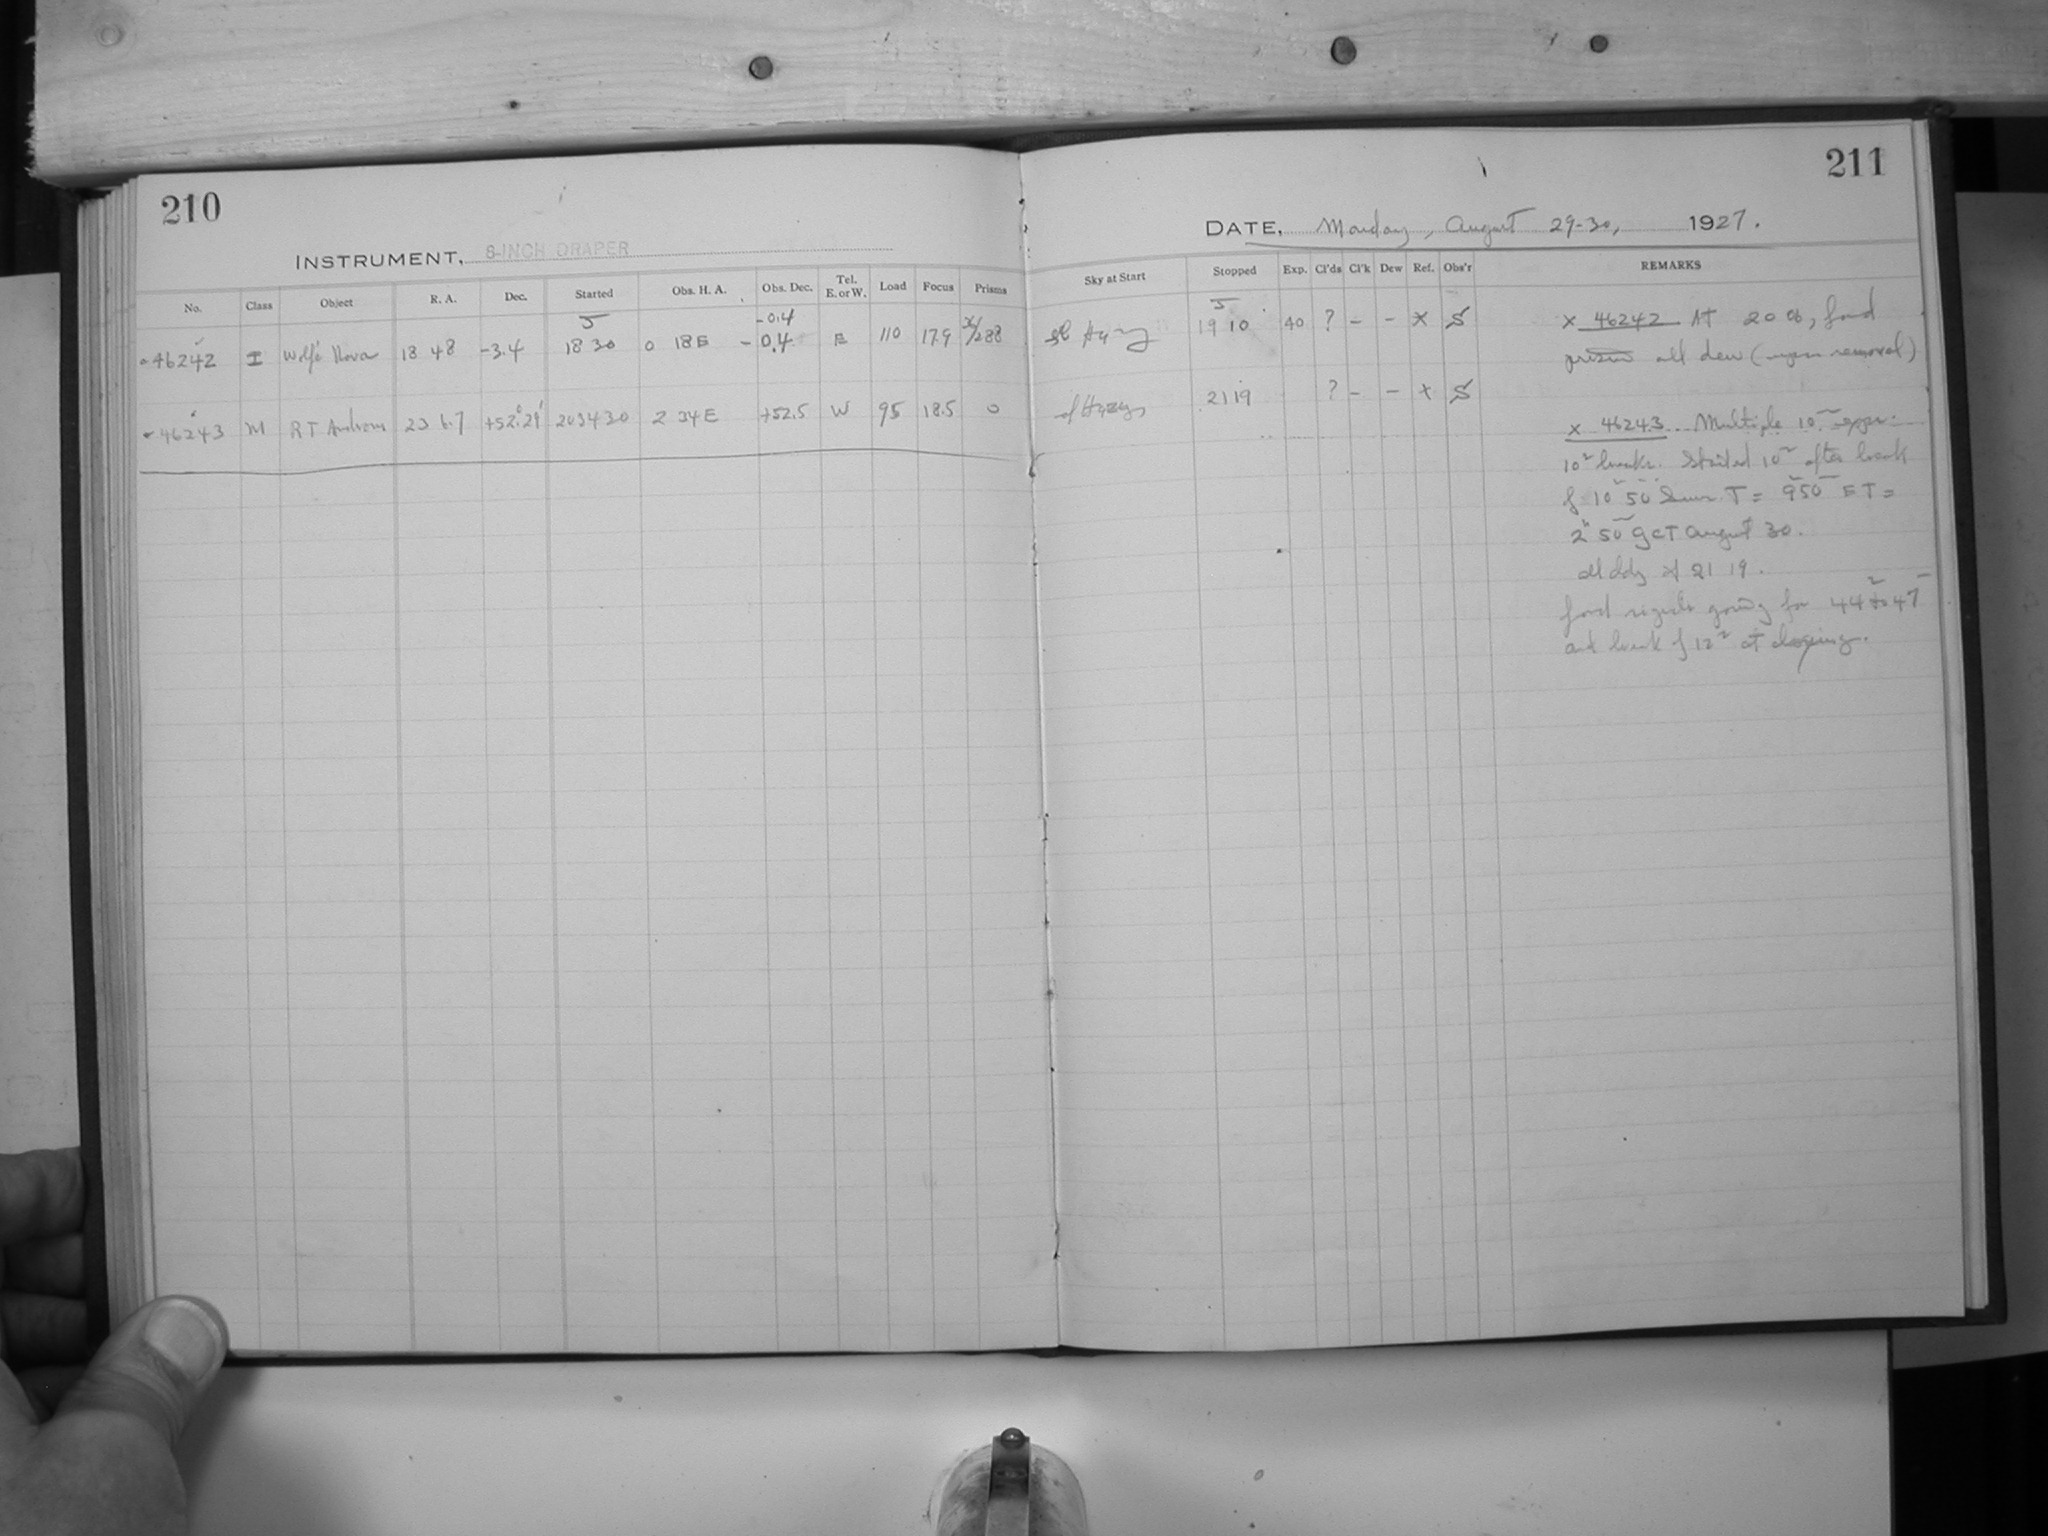 210
INSTRUMENT, 8-INCH DRAPER
No. Class Object R. A. Dec. Started Obs. H. A. Obs. Dec. Tel. E. or W. Load Focus Prisms
46242 I Wolf's Nova 18 48 -3.4 18 30 0 18 E -0.4 -0.4 E 110 17.9
46243 M RT Androm 23 6.7 +52°29' 203430 2 34 E +52.5 W 95 18.5 0
211
DATE, Monday, August 29-30, 1927.
Sky at Start Stopped Exp. Cl'ds Cl'k Dew Ref. Obs'r REMARKS
19 10 40 ? - - x S
2119 ? - - x S
x 46242 At 20 06, found
prism all dew (upon removal)
x 46243 Multiple 10
10 breaks. Started 10 after break
of 10 50 Summ. T = 950 E T =
2h 50m GCT August 30.
at 21 19.
found going for 44 to 47
and break of 12 at closing.